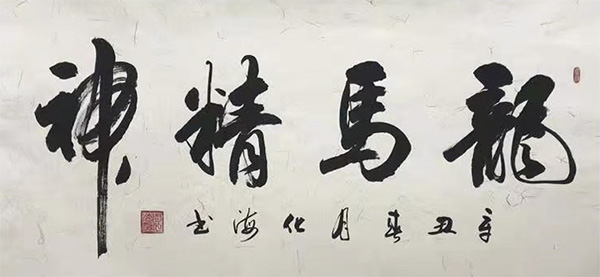 龍馬精神
辛丑春月化海书